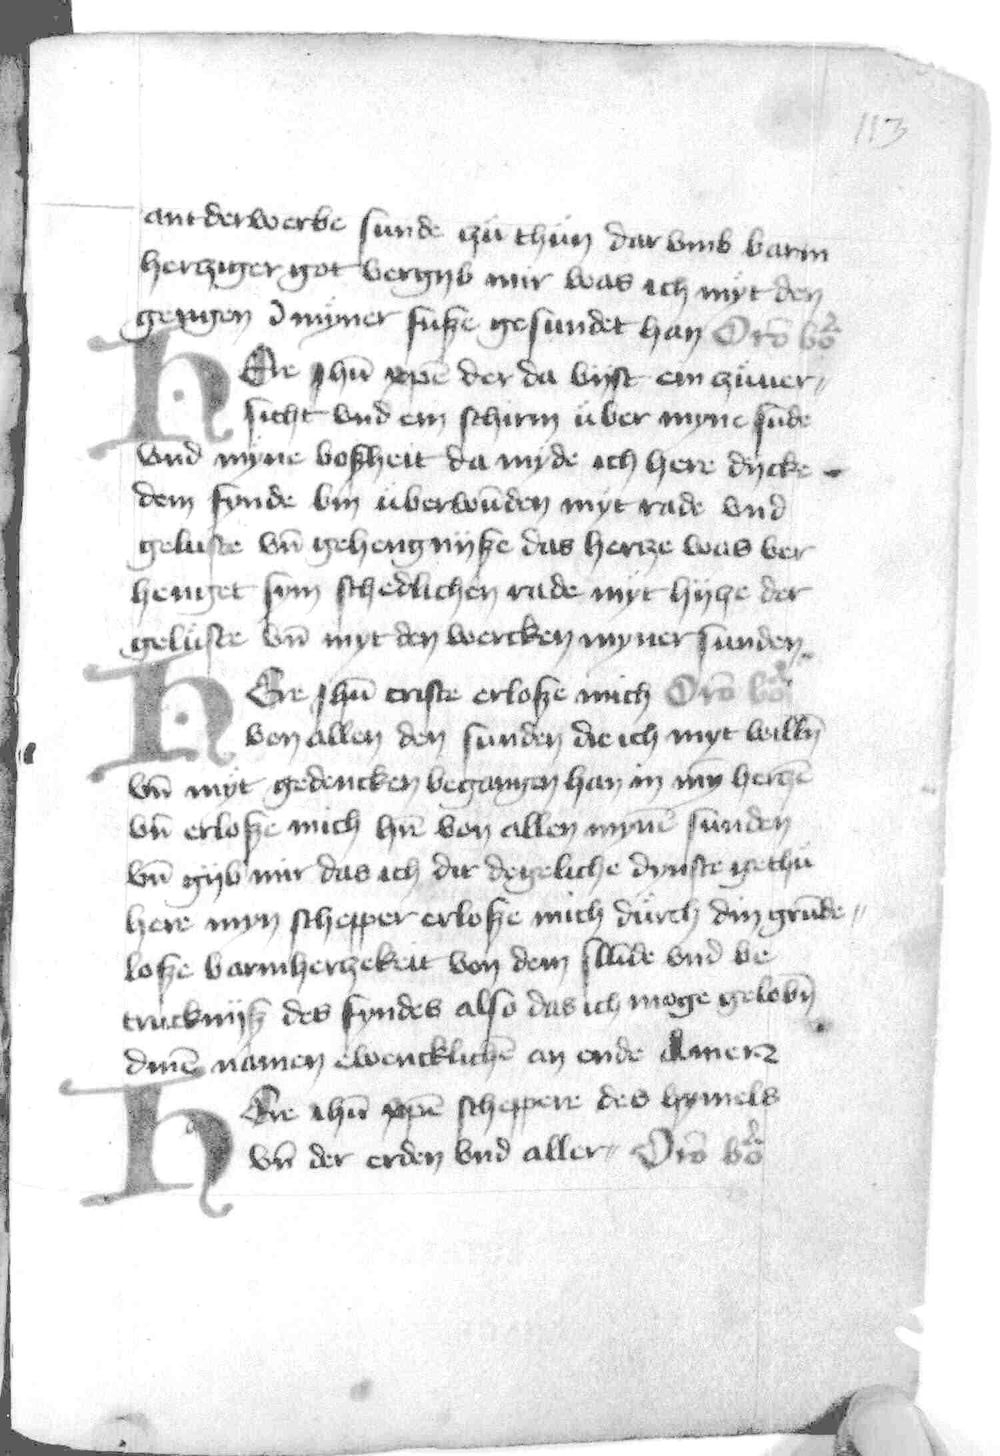 113
antderwerbe sunde zü thün dar vmb barm
hertziger got vergyb mir was ich myt den
gengen J myner fuße gesundet han Orō bo
HEre jhū xpē der da byst ein züuer⸗
sicht vnd ein schirm über myne sūde
vnd myne boßheit da myde ich here dycke
dem fynde bin überwūden myt rade vnd
geluste vn̄ gehengnyße das hertze was ver
henget sym schedlichen rade myt hyȝe der
gelüste vn̄ myt den wercken myner sunden
HEre jhū criste erloße mich Orō bo
von allen den sunden die ich myt willn̄
vn̄ myt gedencken begangen han in mȳ hertzē
vn̄ erloße mich hr̄e von allen mynē sunden
vn̄ gyb mir das ich dir degeliche dynste gethü
here myn schepper erloße mich dürch din grūde⸗
loße barmhertzekeit von dem slūde vnd be
truckniß des fyndes also das ich moge gelobn̄
dinē namen ewencklichē an ende Amen
HEre ihū xpē scheppere des hymels
vn̄ der erden vnd aller⸗ Orō bo